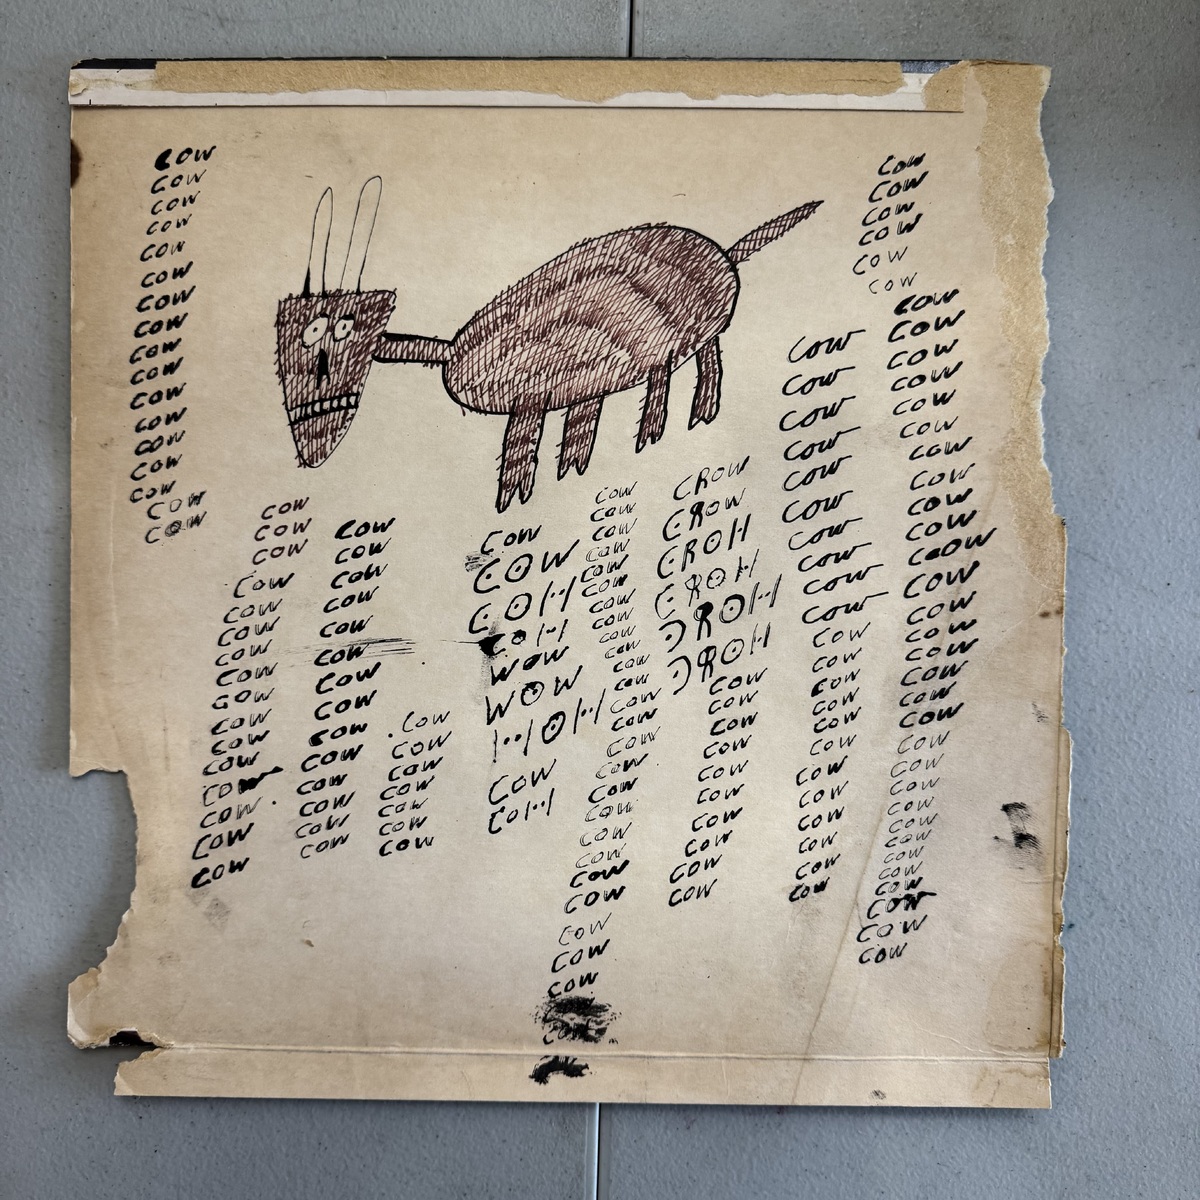 COW
COW
COW
COW
COW
COW
COW
COW
COW
COW
COW
COW
COW
COW
COW
COW
COW
COW
COW
COW
COW
COW
COW
COW
COW
COW
COW
COW
COW
COW
COW
COW
COW
COW
COW
COW
COW
COW
COW
COW
COW
COW
COW
COW
COW
COW
COW
COW
COW
COW
COW
COW
COW
COW
COW
COW
COH
COH
WOW
WOW
HOH
COW
COH
COW
COW
COW
COW
COW
COW
COW
COW
COW
COW
COW
COW
COW
COW
COW
COW
COW
COW
COW
COW
COW
COW
COW
COW
CROW
CROW
CROH
CROH
ƆROH
ƆROH
COW
COW
COW
COW
COW
COW
COW
COW
COW
COW
COW
COW
COW
COW
COW
COW
COW
COW
COW
COW
COW
COW
COW
COW
COW
COW
COW
COW
COW
COW
COW
COW
COW
COW
COW
COW
COW
COW
COW
COW
COW
COW
COW
COW
COW
COW
COW
COW
COOW
COW
COW
COW
COW
COW
COW
COW
COW
COW
COW
COW
COW
COW
COW
COW
COW
COW
COW
COW